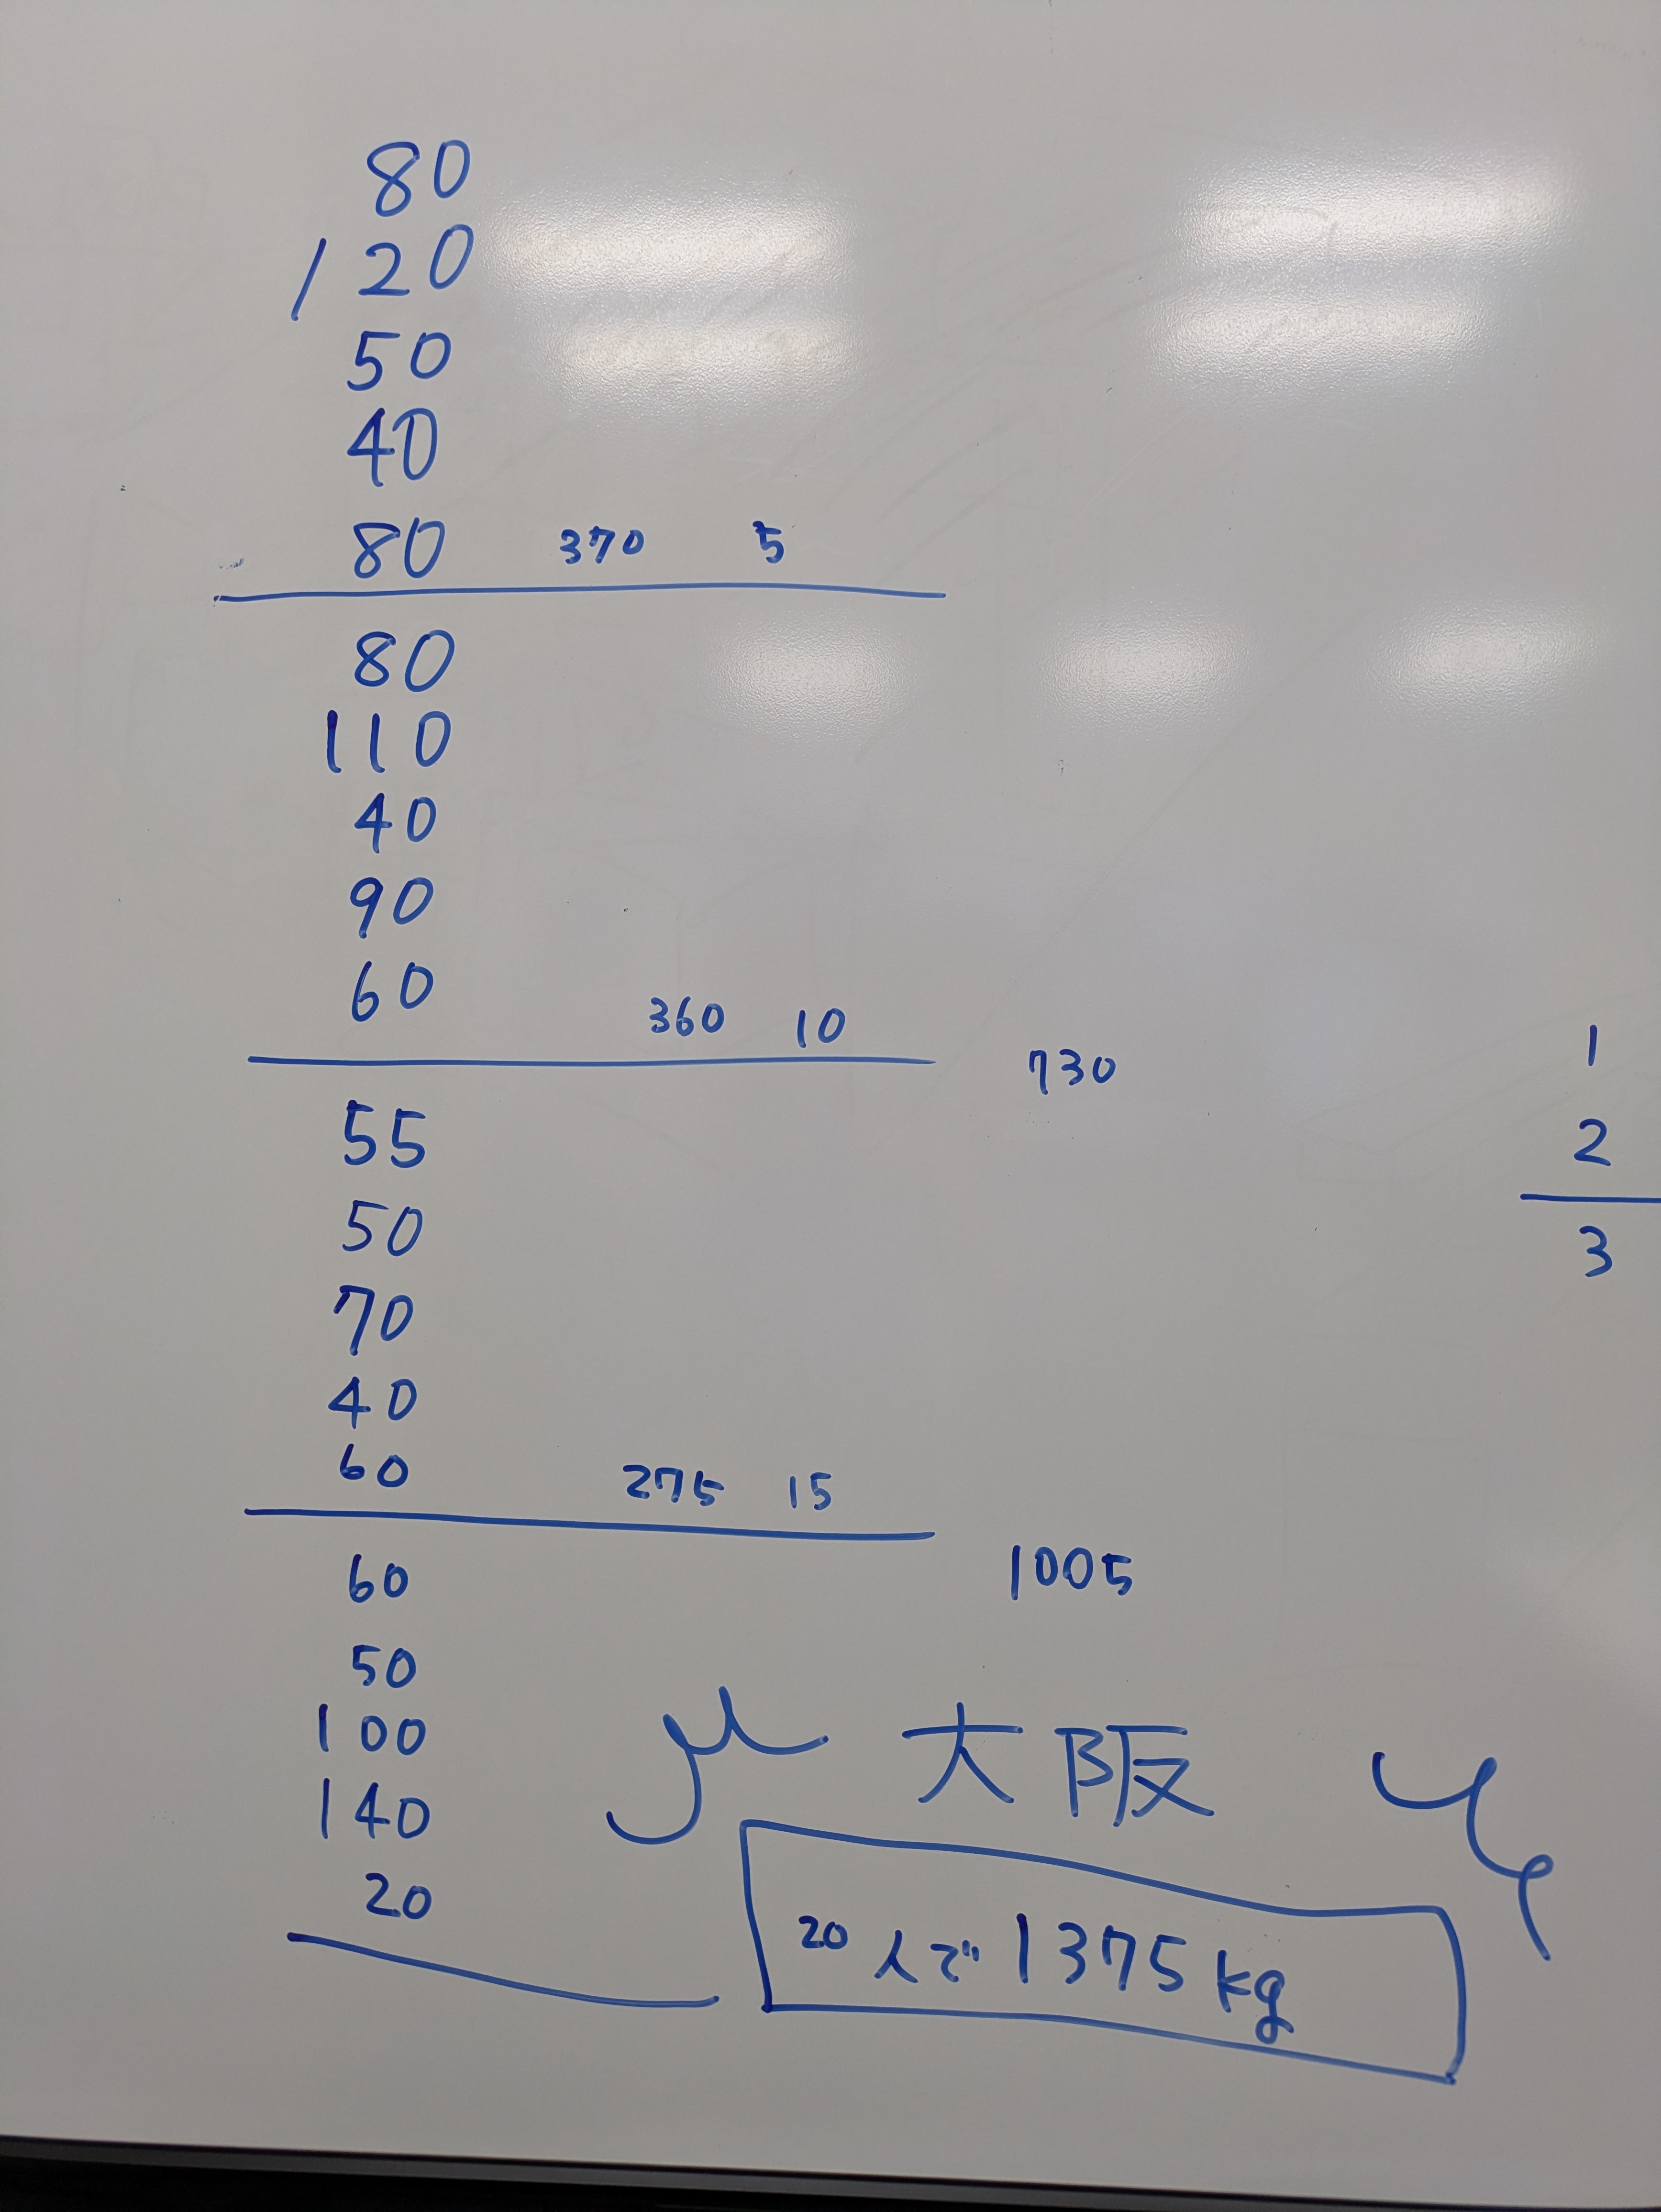 80
120
50
40
80 370 5
80
110
40
90
60 360 10
730
55
50
70
40
60 275 15
1005
60
50
100
140
20
大阪
20人で1375kg
1
2
3